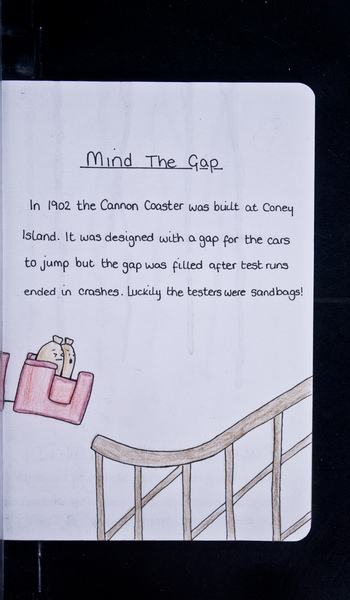 Mind The Gap
In 1902 the Cannon Coaster was built at Coney
Island. It was designed with a gap for the cars
to jump but the gap was filled after test runs
ended in crashes. Luckily the testers were sandbags!